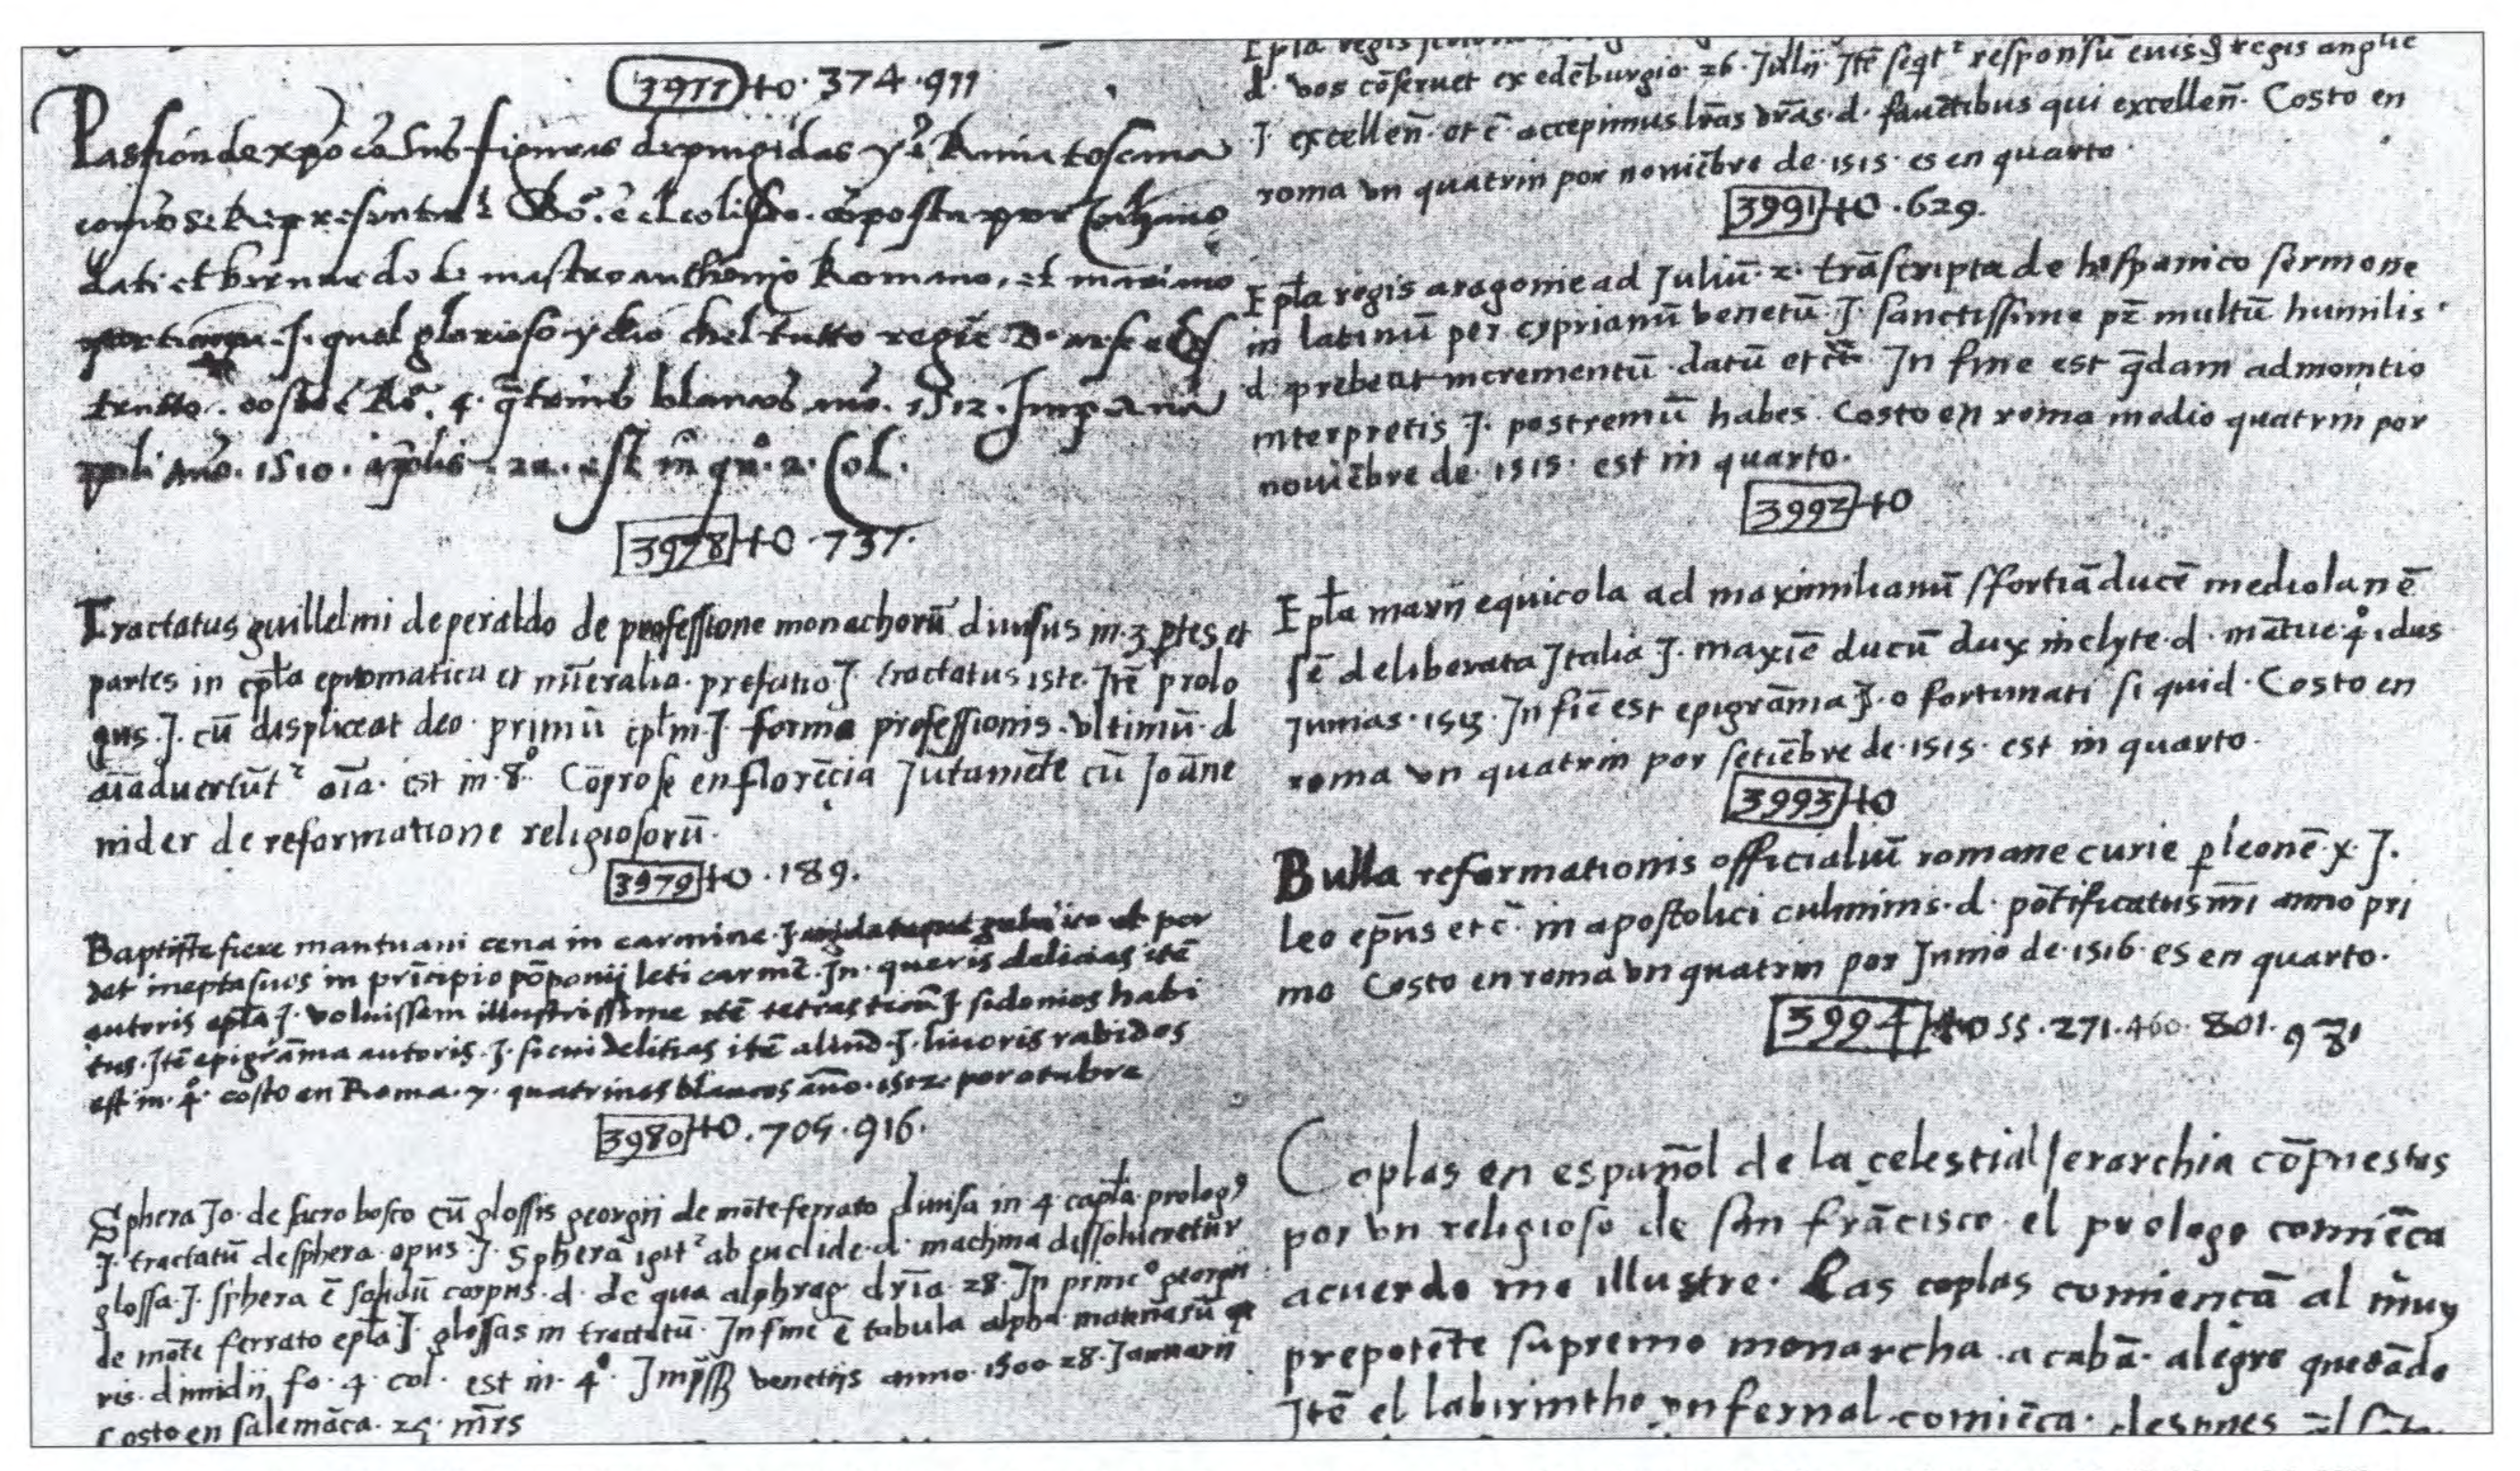 3977 +o. 374. 911
Passion de xpo cō sus figuras depingidas y ē Rima toscana
como se Representa ē Ro. ē el coliseo. cōposta por
dati et bernardo de mastro anthonio Romano, et mariano
J. quel glorioso y dio chel tutto regie D.
4. qtrines blancos 1512.
1510. est in qº. 2. Col.
3978 +o. 737.
Tractatus guillelmi de peraldo de professione monachorū diuisus in 3 ptes et
partes in cpła epitomatica et nūeralia. prefatio J. tractatus iste. Jtē prolo
gus. J. cū displiceat deo. primū cpłm J. forma professionis. vltimū. d
aīaduertūt² oīa. est in. 8º. Cōprose en florēcia Jutamēte cū Joāne
nider de reformatione religiosorū.
3979 +o. 189.
Baptiste fiere mantuani cena in carmine. J. por
det ineptasuos in prīcipio pōponij leti carmē. Jn. queris delicias itē
autoris epła J. voluissem illustrissime itē tetrasticū J sidonios habi
tus. Jtē epigrāma autoris. J. sicui delitias itē aliud. J. liuoris rabidos
est in. 4º. costo en Roma. 7. quatrines blancos año. 1512. por otubre
3980 +o. 705. 916.
Sphera Jo. de sacro bosco cū glossis georgij de mōte ferrato diuisa in 4 capła. prolog9
J. tractatū de sphera. opus. J. Sphera igit² ab euclide. d. machina dissolueretur
glossa. J. sphera ē solidū corpus. d. de qua alphrag. drīa. 28. Jn princº georgij
de mōte ferrato epła J. glossas in tractatū. Jn fine ē tabula alpha. materiarū
ris. dimidij fo. 4. col. est in. 4º. Jmpss venetijs anno. 1500 28. Januarij
Costo en salemāca. 25. mrs
Epła regis
d. vos cōseruet ex edēburgio. 26. Julij. Jtē seqt² responsū regis anglie
J. excellen̄. et c̄. accepimus lrās vrās. d. fauētibus qui excellen̄. Costo en
roma vn quatrin por nouiēbre de. 1515. es en quarto.
3991 +o. 629.
Epła regis aragonie ad Juliū. 2. trāscripta de hispanico sermone
in latinū per cyprianū venetū. J. sanctissime pr̄ multū humilis.
d. prebeat incrementū. datū et c̄. Jn fine est qdam admonitio
interpretis J. postremū habes. Costo en roma medio quatrin por
nouiēbre de. 1515. est in quarto.
3992 +o
Epła marij equicola ad maximilianū sfortiā ducē mediolanē
sē deliberata Jtalia J. maxīe ducū dux inclyte. d. mātue. 4º. idus
Junias. 1513. Jn fīe est epigrāma J. o fortunati si quid. Costo en
roma vn quatrin por setiēbre de. 1515. est in quarto.
3993 +o
Bulla reformationis officialiū romane curie p leonē. x. J.
Leo ep̄us et c̄. in apostolici culminis. d. pōtificatus nr̄i anno pri
mo Costo en roma vn quatrin por Junio de. 1516. es en quarto.
3994 +o 55. 271. 460. 801. 981
Coplas en español de la celestial Jerarchia cōpuestas
por vn religioso de san frācisco. el prologo comiēca
acuerdo me illustre. Las coplas comiencā al muy
prepotēte supremo monarcha. acabā. alegre quedādo
Jtē el labirintho ynfernal. comiēca. despues